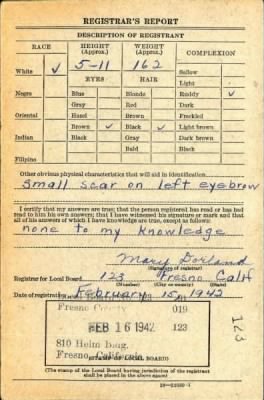 REGISTRAR'S REPORT
DESCRIPTION OF REGISTRANT
RACE HEIGHT (Approx.) WEIGHT (Approx.) COMPLEXION
5-11 162
White ✓ EYES HAIR Sallow
Light
Negro Blue Blonde Ruddy ✓
Gray Red Dark
Oriental Hazel Brown Freckled
Brown ✓ Black ✓ Light brown
Indian Black Gray Dark brown
Bald Black
Filipino
Other obvious physical characteristics that will aid in identification
small scar on left eyebrow
I certify that my answers are true; that the person registered has read or has had
read to him his own answers; that I have witnessed his signature or mark and that
all of his answers of which I have knowledge are true, except as follows:
none to my knowledge
Mary Dorland
(Signature of registrar)
Registrar for Local Board 123 Fresno Calif
(Number) (City or county) (State)
Date of registration February 15, 1942
Fresno County 019
FEB 16 1942 123
810 Helm Bldg.
Fresno, California
(STAMP OF LOCAL BOARD)
(The stamp of the Local Board having jurisdiction of the registrant
shall be placed in the above space.)
123